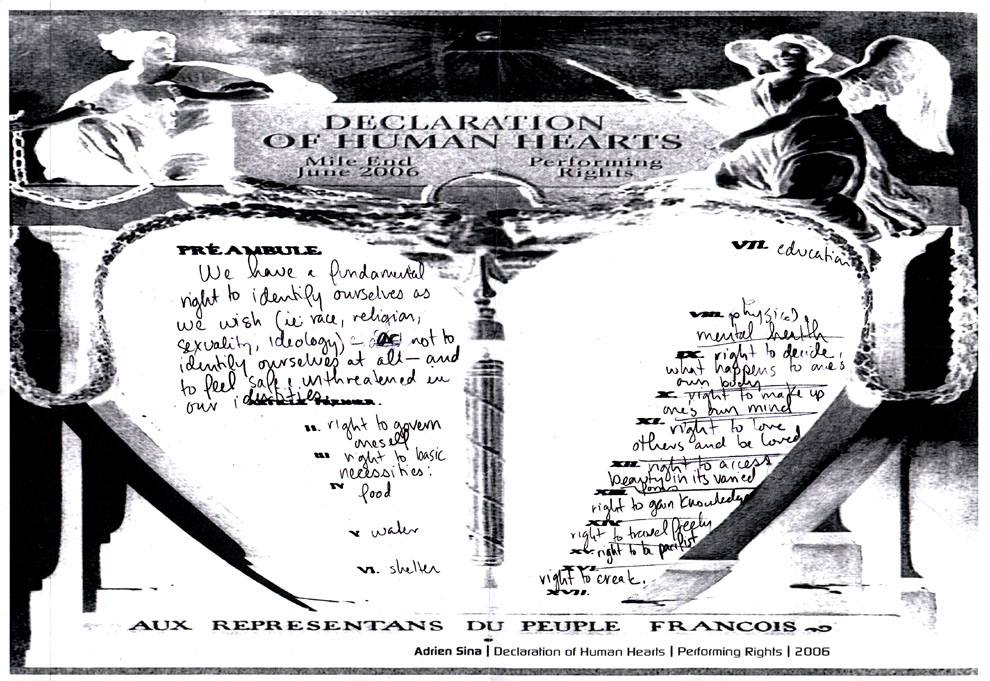 DECLARATION
OF HUMAN HEARTS
Mile End
June 2006
Performing
Rights
PRÉAMBULE
We have a fundamental
right to identify ourselves as
we wish (ie: race, religion,
sexuality, ideology) — or not to
identify ourselves at all — and
to feel safe & unthreatened in
our identities.
ARTICLE PREMIER.
II. right to govern
oneself
III right to basic
necessities:
IV
food
V water
VI. shelter
VII. education
VIII. physical
mental health
IX. right to decide
what happens to one's
own body
X. right to make up
one's own mind
XI. right to love
others and be loved
XII. right to access
beauty in its varied
forms
XIII.
right to gain knowledge
XIV
right to travel freely
XV. right to be pacifist
XVI.
right to creak.
XVII.
AUX REPRESENTANS DU PEUPLE FRANCOIS
Adrien Sina | Declaration of Human Hearts | Performing Rights | 2006